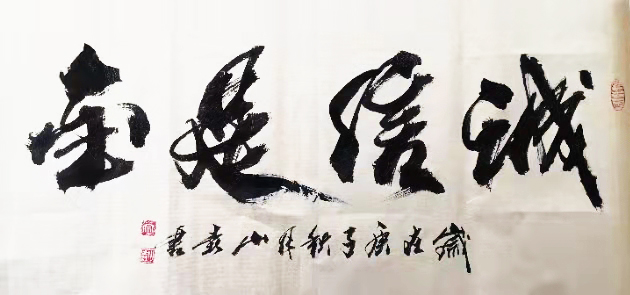 诚信是金
歲在庚子秋月山袁書